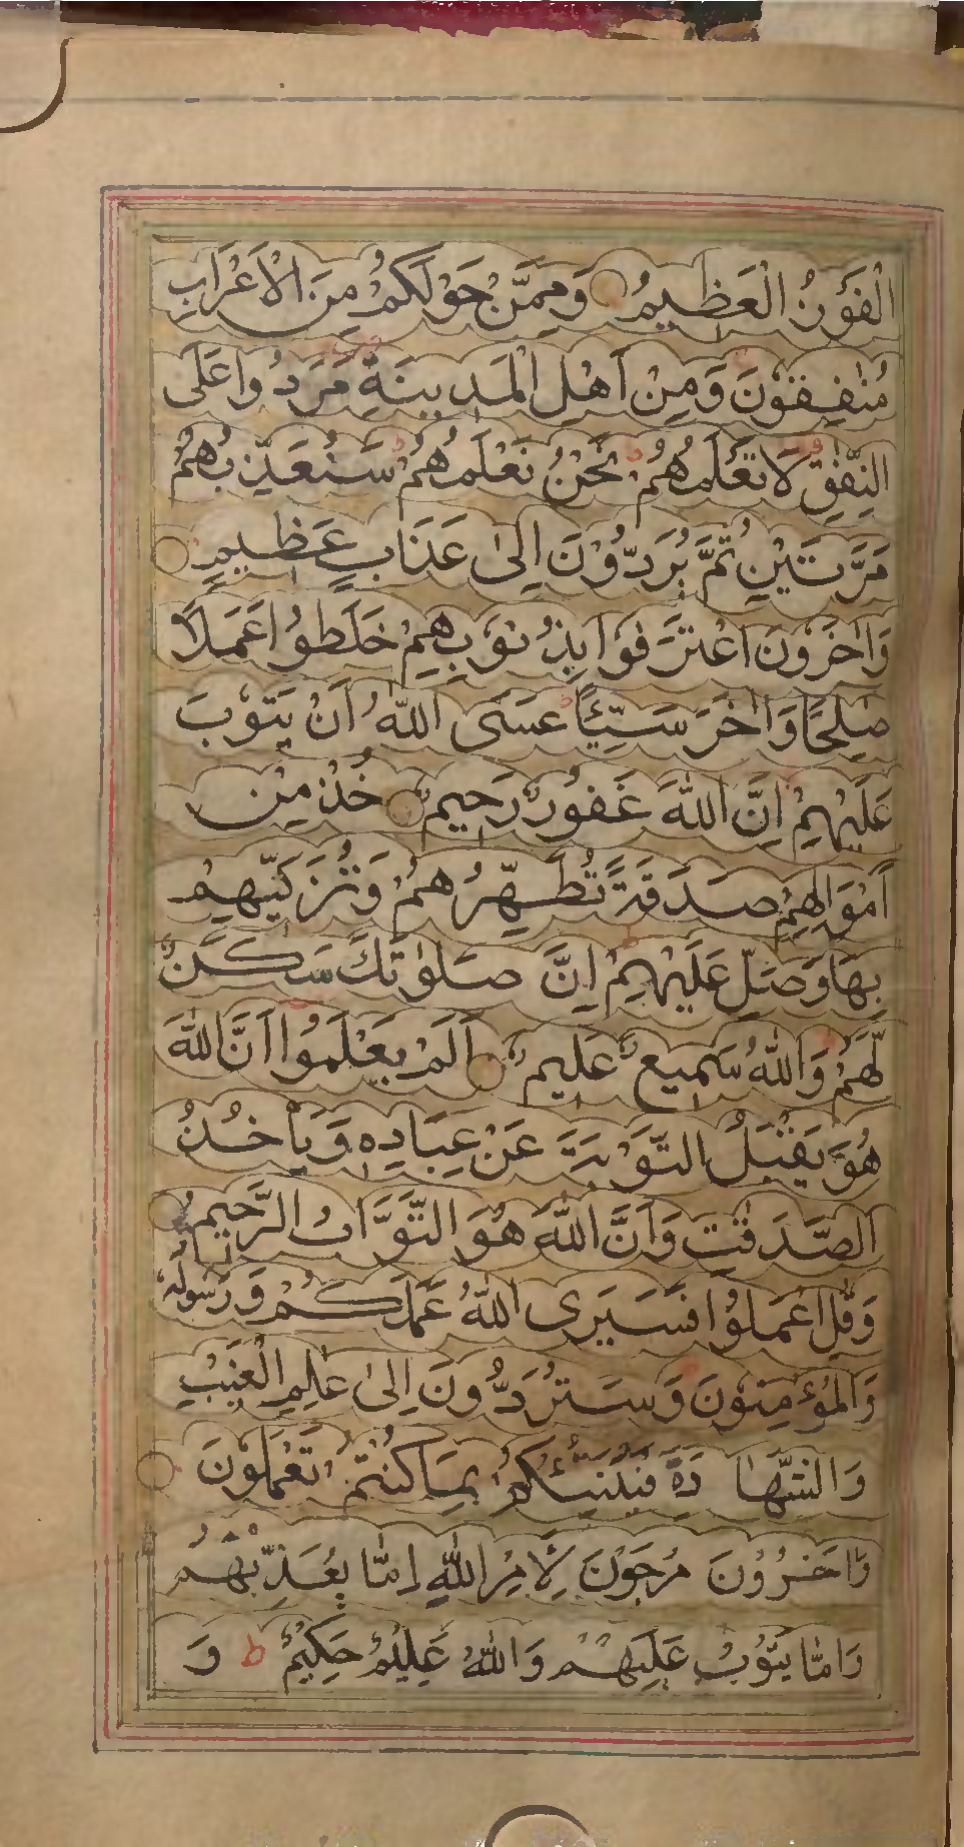 الْفَوْزُ الْعَظِيمُ وَمِمَّنْ حَوْلَكُمْ مِنَ الْاَعْرَابِ
مُنٰفِقُونَ وَمِنْ اَهْلِ الْمَدِينَةِ مَرَدُوا عَلَى
النِّفَاقِ لَا تَعْلَمُهُمْ نَحْنُ نَعْلَمُهُمْ سَنُعَذِّبُهُمْ
مَرَّتَيْنِ ثُمَّ يُرَدُّوْنَ اِلٰى عَذَابٍ عَظِيمٍ
وَاٰخَرُونَ اعْتَرَفُوْا بِذُنُوْبِهِمْ خَلَطُوْا عَمَلًا
صٰلِحًا وَاٰخَرَ سَيِّئًا عَسَى اللّٰهُ اَنْ يَتُوْبَ
عَلَيْهِمْ اِنَّ اللّٰهَ غَفُورٌ رَحِيمٌ خُذْ مِنْ
اَمْوَالِهِمْ صَدَقَةً تُطَهِّرُهُمْ وَتُزَكِّيهِمْ
بِهَا وَصَلِّ عَلَيْهِمْ اِنَّ صَلٰوتَكَ سَكَنٌ
لَّهُمْ وَاللّٰهُ سَمِيعٌ عَلِيمٌ اَلَمْ يَعْلَمُوا اَنَّ اللّٰهَ
هُوَ يَقْبَلُ التَّوْبَةَ عَنْ عِبَادِهِ وَيَأْخُذُ
الصَّدَقٰتِ وَاَنَّ اللّٰهَ هُوَ التَّوَّابُ الرَّحِيمُ
وَقُلِ اعْمَلُوْا فَسَيَرَى اللّٰهُ عَمَلَكُمْ وَرَسُولُهُ
وَالْمُؤْمِنُوْنَ وَسَتُرَدُّونَ اِلٰى عٰلِمِ الْغَيْبِ
وَالشَّهَادَةِ فَيُنَبِّئُكُمْ بِمَا كُنْتُمْ تَعْمَلُونَ
وَاٰخَرُوْنَ مُرْجَوْنَ لِاَمْرِ اللّٰهِ اِمَّا يُعَذِّبُهُمْ
وَاِمَّا يَتُوْبُ عَلَيْهِمْ وَاللّٰهُ عَلِيْمٌ حَكِيْمٌ ط وَ